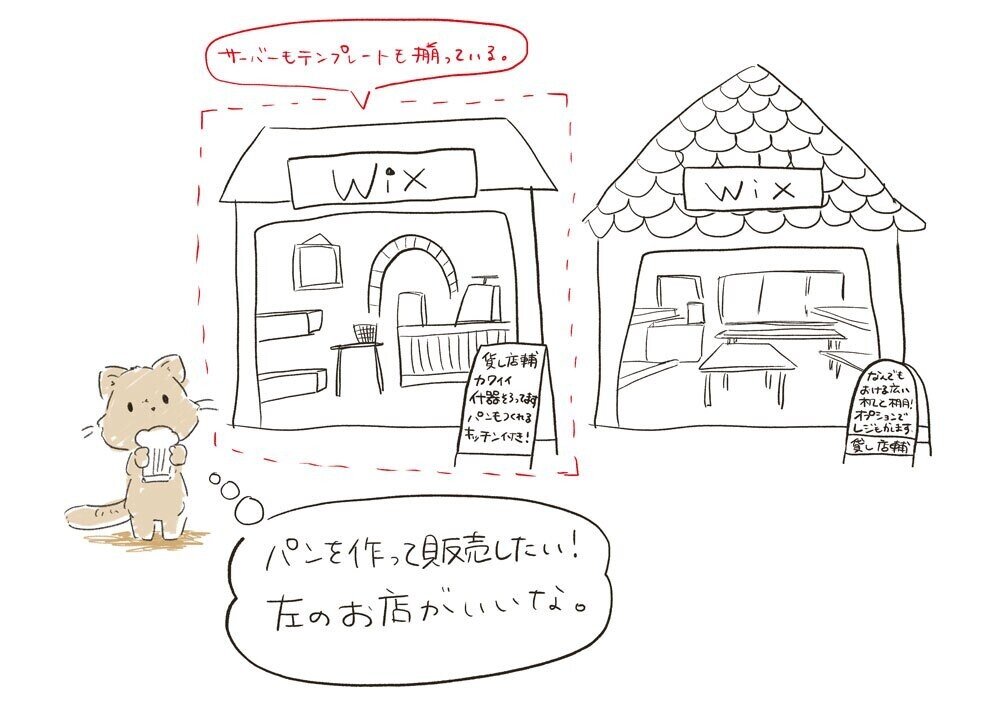 サーバーもテンプレートも揃っている。
Wix
Wix
貸し店舗
カワイイ
什器そろってます
パンもつくれる
キッチン付き!
なんでも
おける広い
机と棚!
オプションで
レジもかします。
貸し店舗
パンを作って販売したい!
左のお店がいいな。